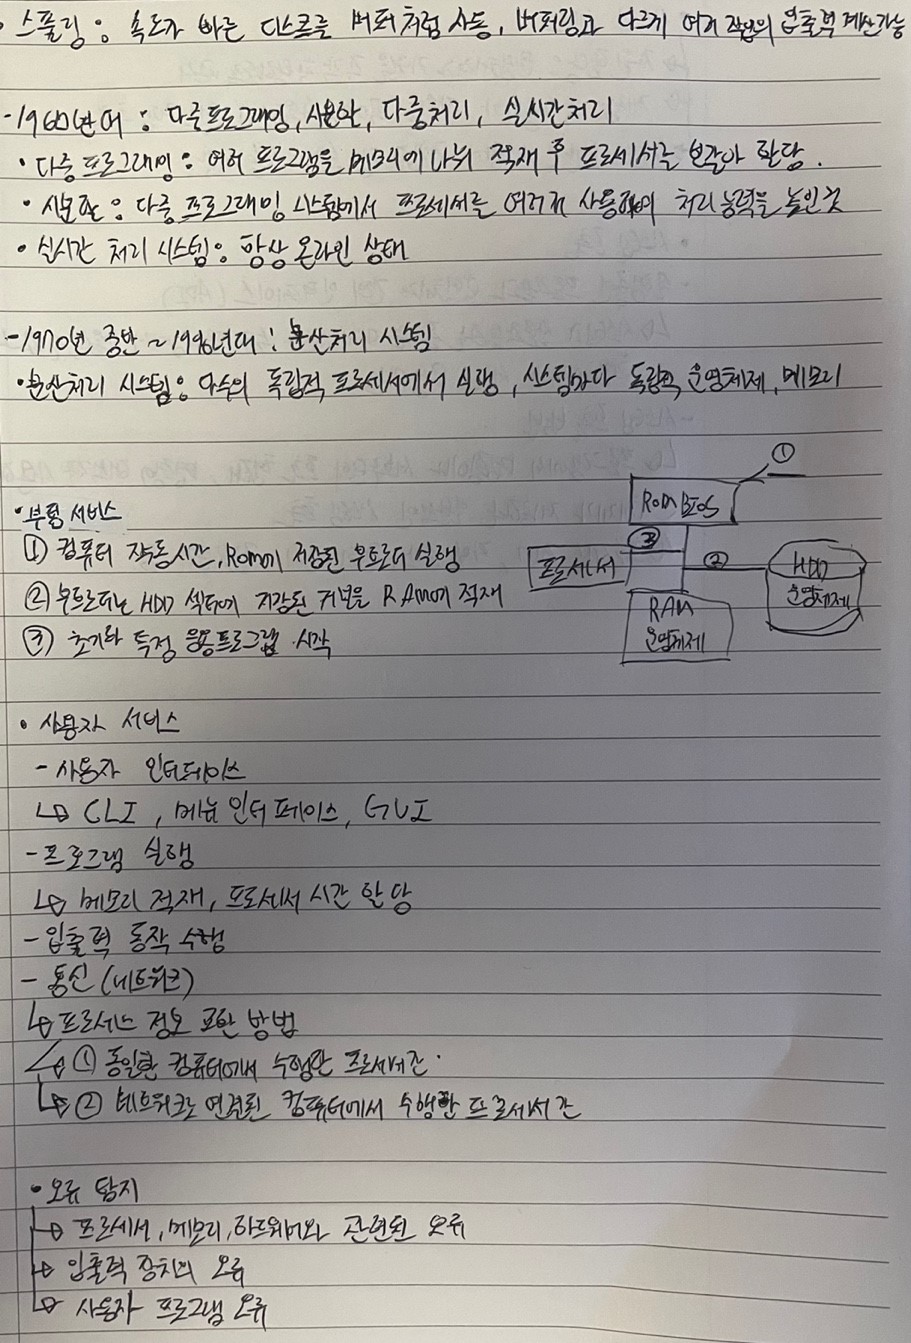 · 스풀링 : 속도가 빠른 디스크를 버퍼처럼 사용, 버퍼링과 다르게 여러 작업의 입출력 계산 가능
-1960년대 : 다중프로그래밍, 시분할, 다중처리, 실시간처리
· 다중 프로그래밍 : 여러 프로그램을 메모리에 나눠 적재 후 프로세서를 번갈아 할당.
· 시분할 : 다중 프로그래밍 시스템에서 프로세서를 여러개 사용하여 처리 능력을 높인 것
· 실시간 처리 시스템 : 항상 온라인 상태
-1970년 중반 ~ 1990년대 : 분산처리 시스템
· 분산처리 시스템 : 다수의 독립적 프로세서에서 실행, 시스템마다 독립적 운영체제, 메모리
· 부팅 서비스
① 컴퓨터 작동시간, Rom에 저장된 부트로더 실행
② 부트로더는 HDD 섹터에 저장된 커널을 RAM에 적재
③ 초기화 특정 응용프로그램 시작
①
ROM BIOS
③
프로세서
②
HDD
운영체제
RAM
운영체제
· 사용자 서비스
- 사용자 인터페이스
↳ CLI, 메뉴 인터페이스, GUI
- 프로그램 실행
↳ 메모리 적재, 프로세서 시간 할당
- 입출력 동작 수행
- 통신 (네트워크)
↳ 프로세스 정보 교환 방법
↳ ① 동일한 컴퓨터에서 수행한 프로세서간.
↳ ② 네트워크로 연결된 컴퓨터에서 수행한 프로세서간
· 오류 탐지
↳ 프로세서, 메모리, 하드웨어와 관련된 오류
↳ 입출력 장치의 오류
↳ 사용자 프로그램 오류